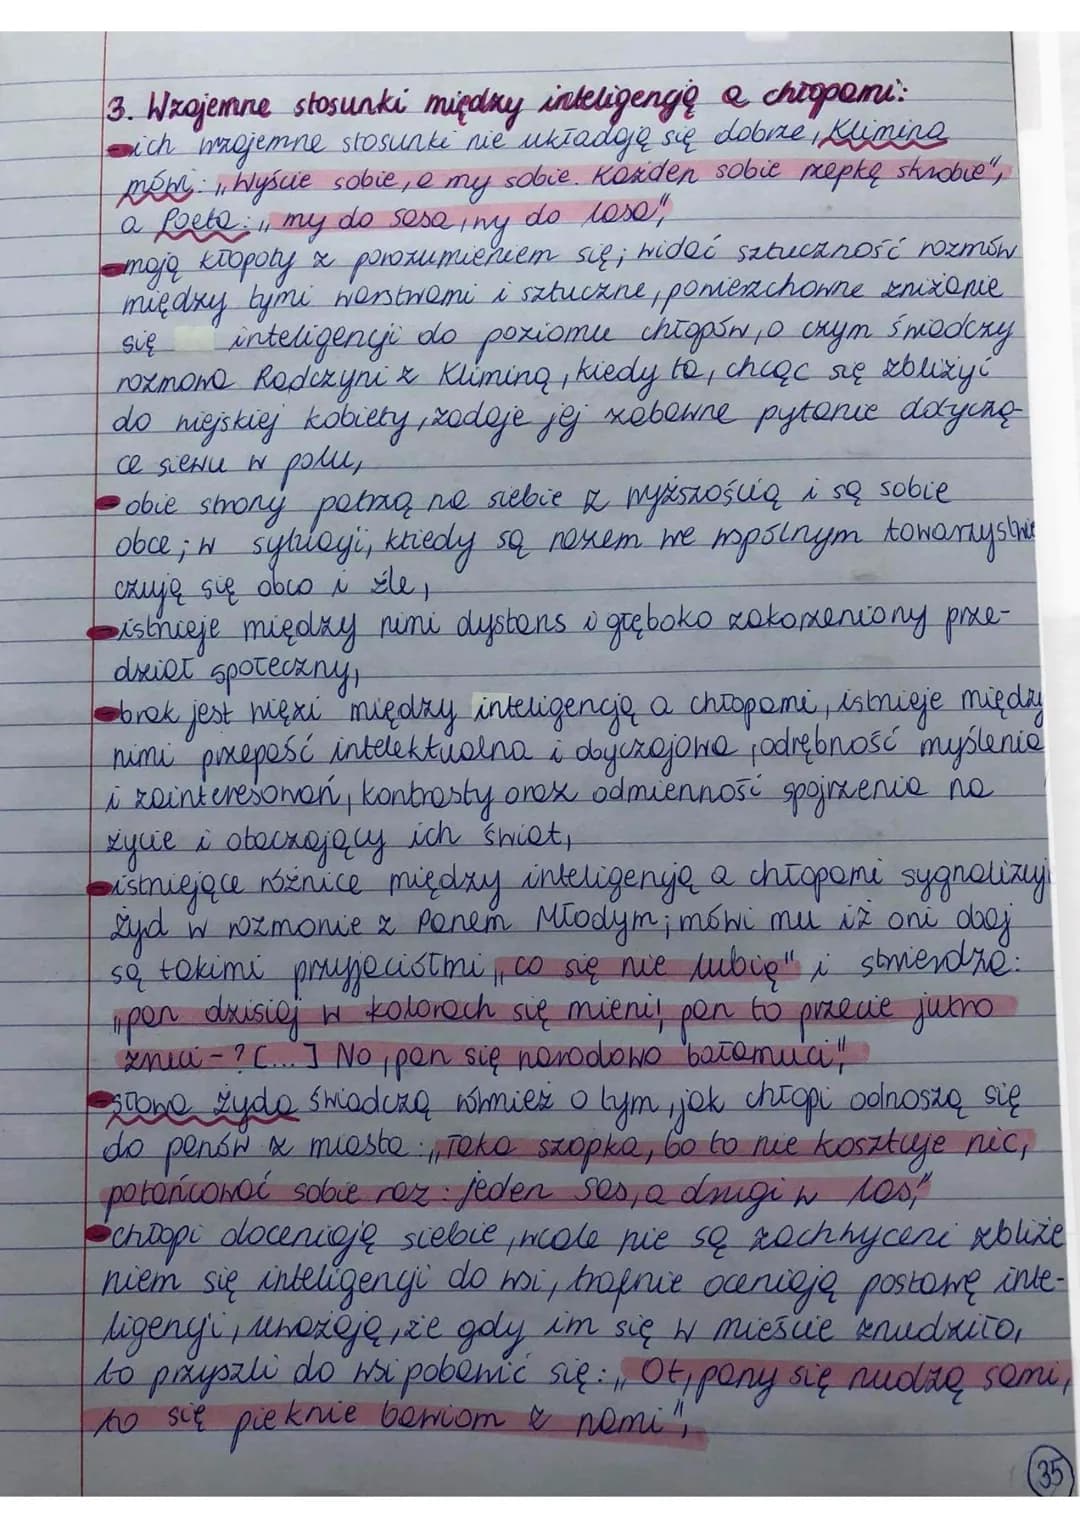 3. Wzajemne stosunki między inteligencją a chłopami:
- ich wzajemne stosunki nie układają się dobrze, Klimina
mówi: „Wyście sobie, a my sobie. Każden sobie rzepkę skrobie",
a Poeta: „my do Sasa, wy do lasa",
- mają kłopoty z porozumieniem się; widać sztuczność rozmów
między tymi warstwami i sztuczne, powierzchowne zniżanie
się inteligencji do poziomu chłopów, o czym świadczy
rozmowa Radczyni z Kliminą, kiedy ta, chcąc się zbliżyć
do wiejskiej kobiety, zadaje jej zabawne pytanie dotyczą-
ce siewu w polu,
- obie strony patrzą na siebie z wyższością i są sobie
obce; w sytuacji, kiedy są razem we wspólnym towarzystwie
czują się obco i źle,
- istnieje między nimi dystans i głęboko zakorzeniony prze-
dział społeczny,
- brak jest więzi między inteligencją a chłopami, istnieje między
nimi przepaść intelektualna i obyczajowa, odrębność myślenia
i zainteresowań, kontrasty oraz odmienność spojrzenia na
życie i otaczający ich świat,
- istniejące różnice między inteligencją a chłopami sygnalizuje
Żyd w rozmowie z Panem Młodym; mówi mu iż oni obaj
są takimi przyjaciółmi „co się nie lubią" i stwierdza:
„pan dzisiaj w kolorach się mieni; pan to przecie jutro
zruci - ? [...] No, pan się narodowo bałamuci",
- słowa Żyda świadczą również o tym, jak chłopi odnoszą się
do panów z miasta: „Taka szopka, bo to nie kosztuje nic,
potańcować sobie raz: jeden Sas, a drugi w las",
- chłopi doceniają siebie, wcale nie są zachwyceni zbliże
niem się inteligencji do wsi, trafnie oceniają postawę inte-
ligencji, uważają, że gdy im się w mieście znudziło,
to przyszli do wsi pobawić się: „Ot, pany się nudzą sami,
to się pięknie bawiom z nami",
35